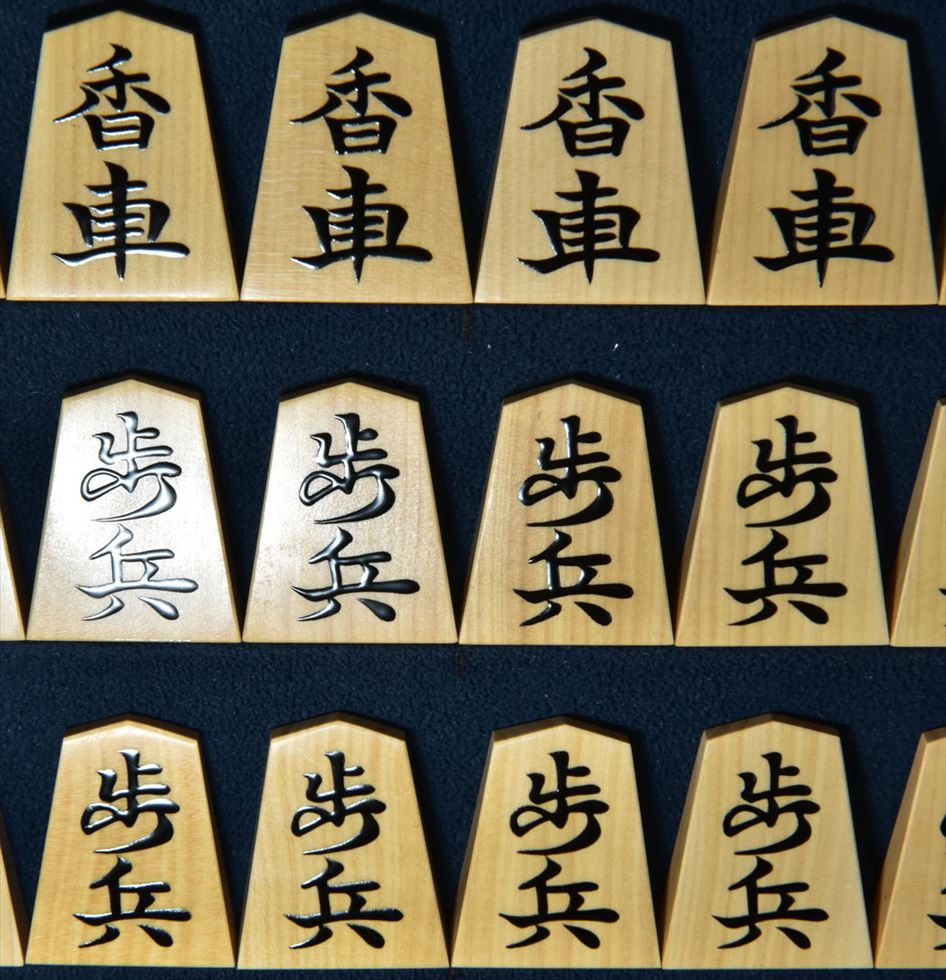 香車 香車 香車 香車
歩兵 歩兵 歩兵 歩兵
歩兵 歩兵 歩兵 歩兵